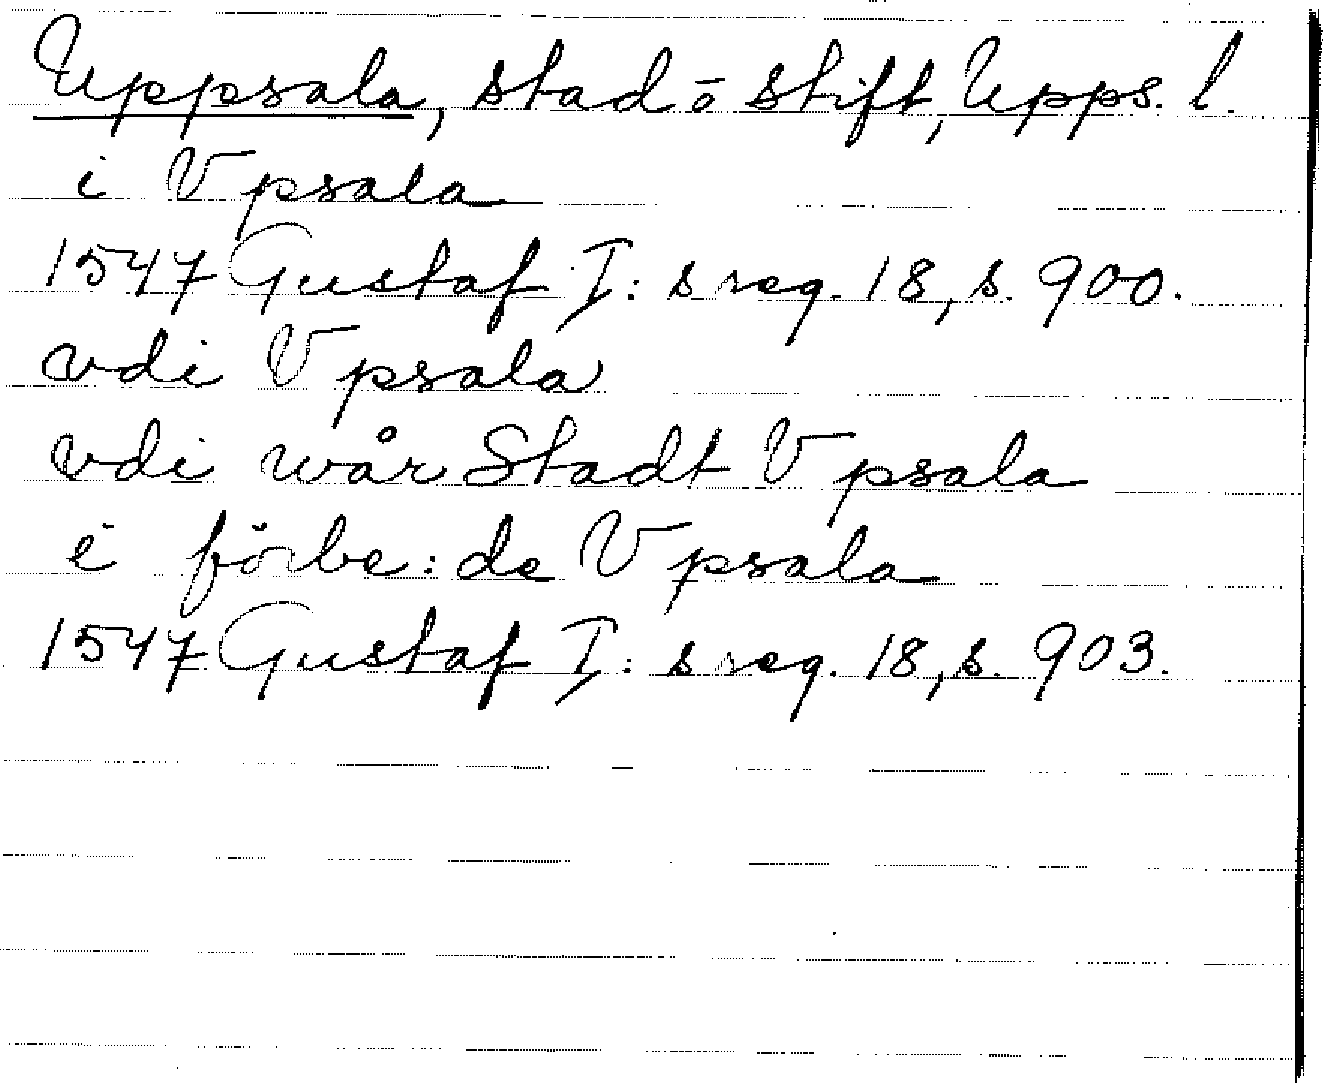 Uppsala, stad o stift, Upps. l.
i Vpsala
1547 Gustaf I:s reg. 18, s. 900.
vdi Vpsala
vdi wår Stadt Vpsala
i förbe:de Vpsala
1547 Gustaf I:s reg. 18, s. 903.